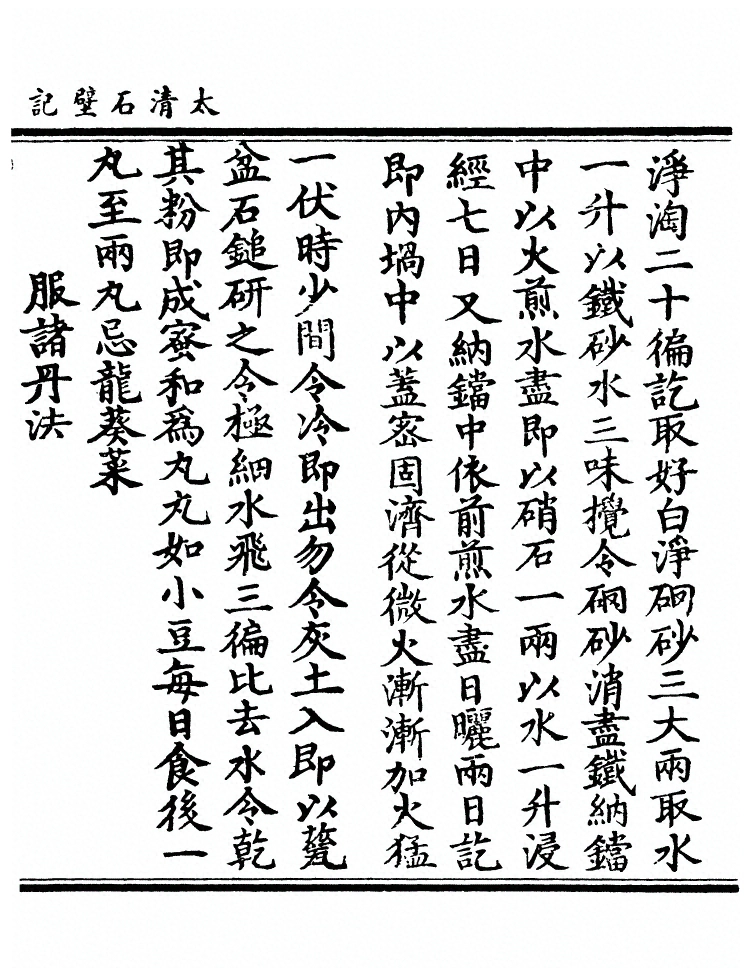 太清石壁記
淨淘二十徧訖取好白淨硇砂三大兩取水
一升以鐵砂水三味攪令硇砂消盡鐵納鐺
中以火煎水盡即以硝石一兩以水一升浸
經七日又納鐺中依前煎水盡日曬兩日訖
即內堝中以蓋宻固濟從微火漸漸加火猛
一伏時少間令冷即出勿令灰土入即以甆
盆石鎚研之令極細水飛三徧比去水令乾
其粉即成宻和爲丸丸如小豆每日食後一
丸至兩丸忌龍葵菜
服諸丹法